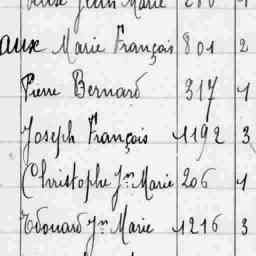 Jean Marie
aux Marie François 801 2
Pierre Bernard 317 1
Joseph François 1192 3
Christophe Jn Marie 206 1
Edouard Jn Marie 1216 3